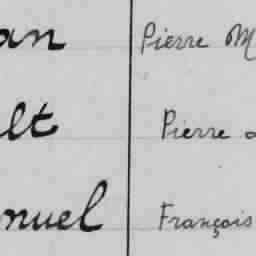 an Pierre M
lt Pierre
nuel François